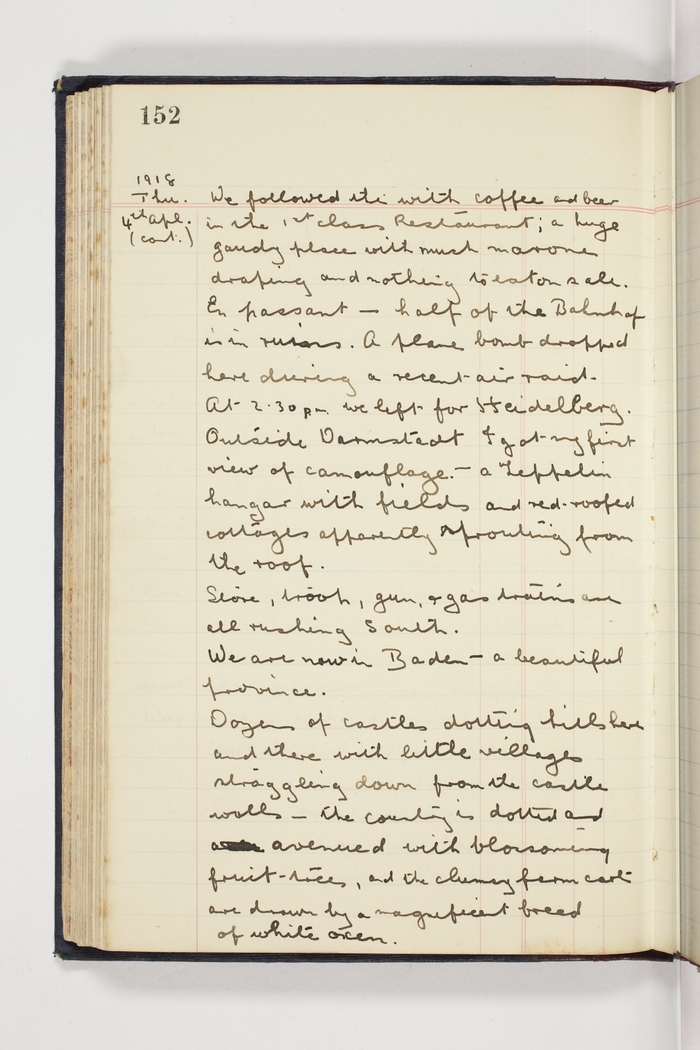 152
1918
Thu.
4th Apl.
(cont.)
We followed this with coffee and beer
in the 1st class Restaurant; a huge
gaudy place with much marone
draping and nothing to eat on sale.
En passant — half of the Bahnhof
is in ruins. A plane bomb dropped
here during a recent air raid.
At 2.30 pm we left for Heidelberg.
Outside Darmstadt I got my first
view of camouflage. — a Zeppelin
hangar with fields and red-roofed
cottages apparently sprouting from
the roof.
Store, troop, gun, & gas trains are
all rushing South.
We are now in Baden — a beautiful
province.
Dozens of castles dotting hills here
and there with little villages
straggling down from the castle
walls — the country is dotted and
avenued with blossoming
fruit-trees, and the clumsy farm carts
are drawn by a magnificent breed
of white oxen.